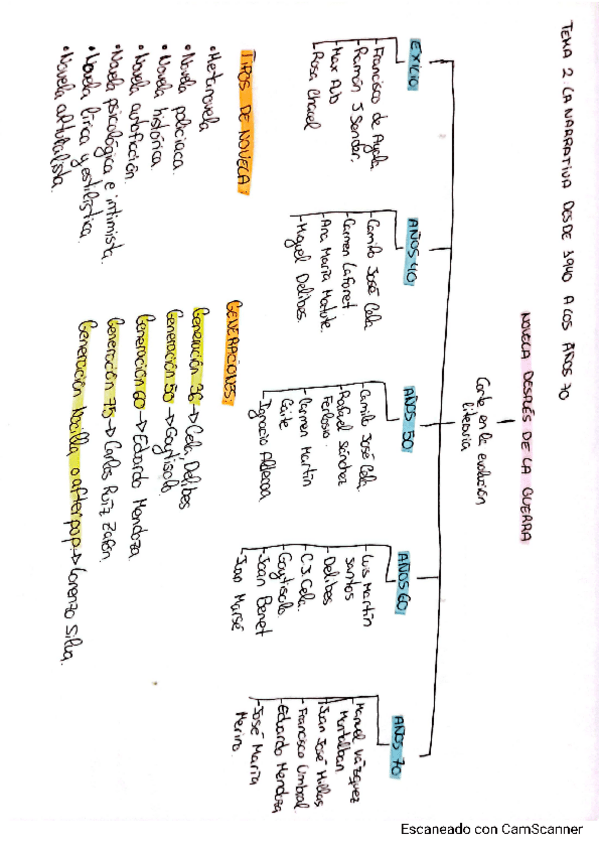 TEMA 2. LA NARRATIVA DESDE 1940 A LOS AÑOS 70
NOVELA DESPUÉS DE LA GUERRA
Corte en la evolución
literaria
EXILIO
-Francisco de Ayala
-Ramón J Sender.
-Max Aub
-Rosa Chacel
AÑOS 40
-Camilo José Cela
-Carmen Laforet
-Ana María Matute.
-Miguel Delibes.
AÑOS 50
-Camilo José Cela.
-Rafael Sánchez
Ferlosio.
-Carmen Martín
Gaite
-Ignacio Aldecoa
AÑOS 60
-Luis Martín
Santos
-Delibes
-C.J. Cela.
-Goytisolo.
-Joan Benet
-Juan Marsé
AÑOS 70
-Manuel Vázquez
Montalban
-Juan José Millas
-Francisco Umbral
-Eduardo Mendoza
-José María
Merino.
TIPOS DE NOVELA:
•Metanovela
•Novela policiaca.
•Novela histórica.
•Novela autoficción.
•Novela psicológica e intimista.
•Novela lírica y estilística.
•Novela culturalista.
GENERACIONES:
Generación 36 → Cela Delibes
Generación 50 → Goytisolo
Generación 60 → Eduardo Mendoza
Generación 75 → Carlos Ruiz Zafón.
Generación Nocilla o afterpop → Lorenzo Silva.
Escaneado con CamScanner